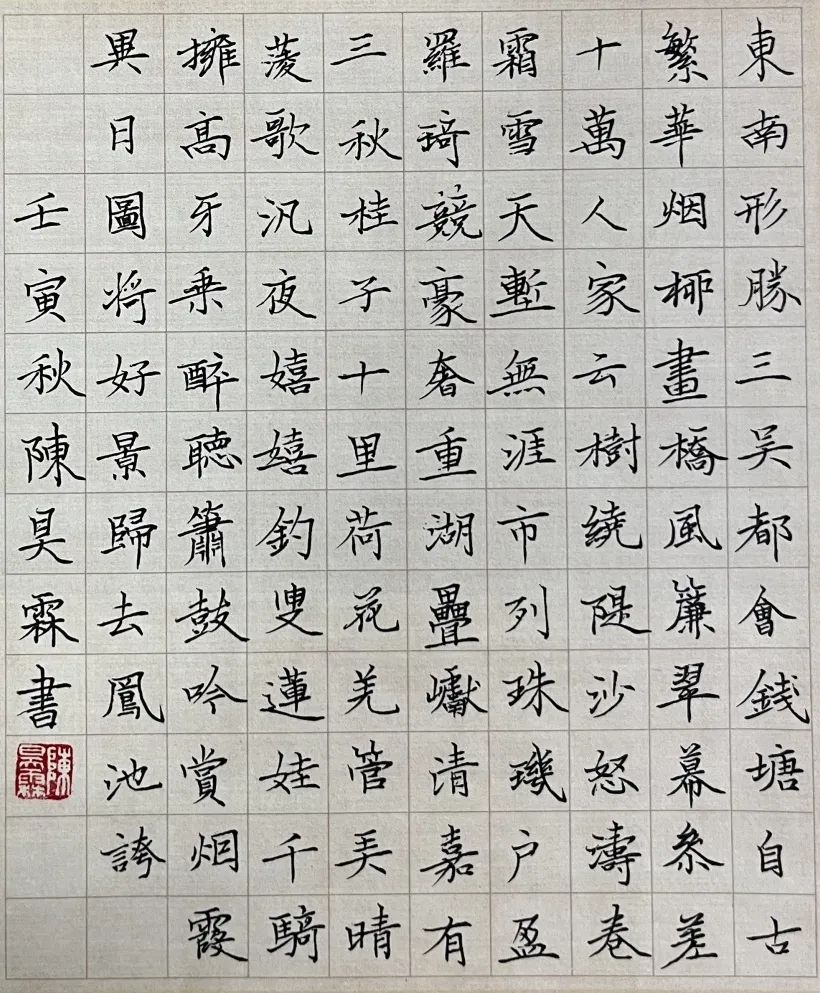 東南形勝三吴都會錢塘自古
繁華烟桺畫橋風簾翠幕叅差
十萬人家云樹繞隄沙怒濤卷
霜雪天塹無涯市列珠璣户盈
羅琦競豪奢重湖疊巘清嘉有
三秋桂子十里荷花羌管弄晴
蔆歌汎夜嬉嬉釣叟蓮娃千騎
擁高牙乗醉聽簫鼓吟賞烟霞
異日圖将好景歸去鳳池誇
壬寅秋陳昊霖書
陳昊霖